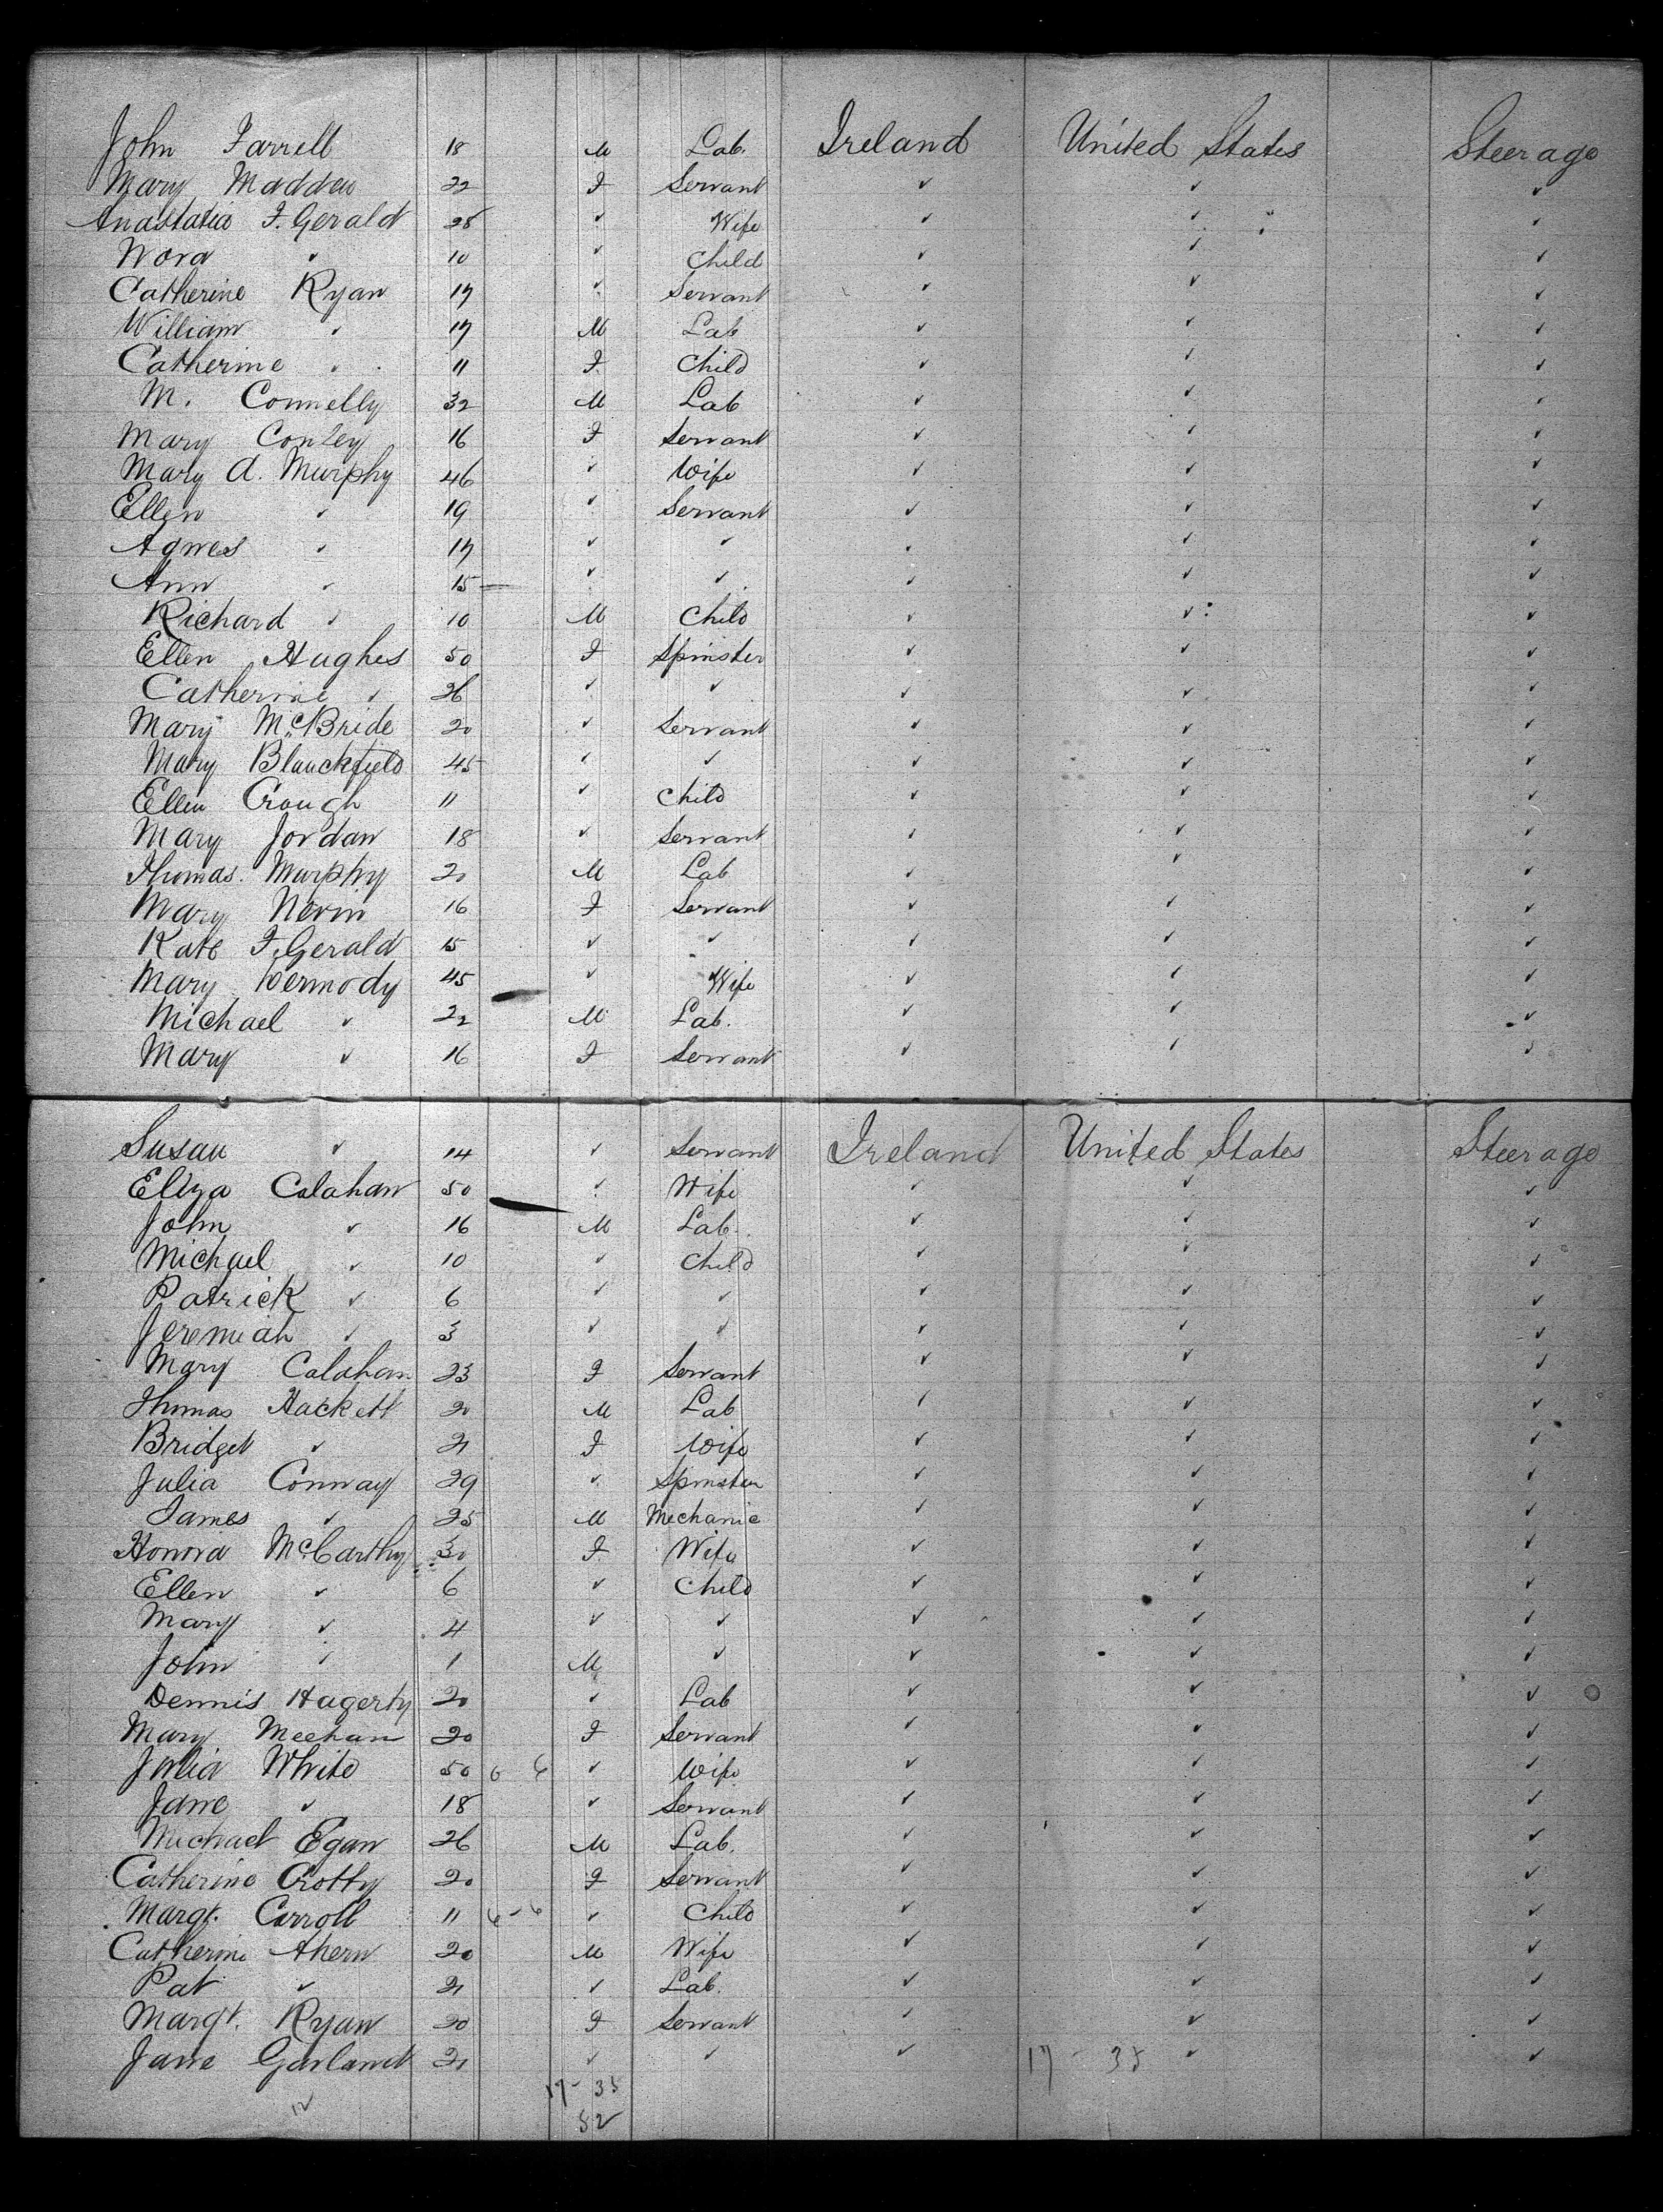 John Farrell 18 M Lab. Ireland United States Steerage
Mary Madden 22 F Servant ✓ ✓ ✓
Anastatia F. Gerald 28 ✓ Wife ✓ ✓ ✓
Nora ✓ 10 ✓ Child ✓ ✓ ✓
Catherine Ryan 17 ✓ Servant ✓ ✓ ✓
William ✓ 17 M Lab ✓ ✓ ✓
Catherine ✓ 11 F. Child ✓ ✓ ✓
M. Connelly 32 M Lab ✓ ✓ ✓
Mary Conley 16 F Servant ✓ ✓ ✓
Mary A. Murphy 46 ✓ Wife ✓ ✓ ✓
Ellen ✓ 19 ✓ Servant ✓ ✓ ✓
Agnes ✓ 17 ✓ ✓ ✓ ✓ ✓
Ann ✓ 15 ✓ ✓ ✓ ✓ ✓
Richard ✓ 10 M Child ✓ ✓ ✓
Ellen Hughes 50 F Spinster ✓ ✓ ✓
Catherine ✓ 26 ✓ ✓ ✓ ✓ ✓
Mary McBride 20 ✓ Servant ✓ ✓ ✓
Mary Blanckfield 45 ✓ ✓ ✓ ✓ ✓
Ellen Crough 11 ✓ Child ✓ ✓ ✓
Mary Jordan 18 ✓ Servant ✓ ✓ ✓
Thomas Murphy 20 M Lab ✓ ✓ ✓
Mary Nevin 16 F Servant ✓ ✓ ✓
Kate F. Gerald 15 ✓ ✓ ✓ ✓ ✓
Mary Dermody 45 ✓ Wife ✓ ✓ ✓
Michael ✓ 22 M Lab. ✓ ✓ ✓
Mary ✓ 16 F Servant ✓ ✓ ✓
Susan ✓ 14 ✓ Servant Ireland United States Steerage
Eliza Calahan 50 ✓ Wife ✓ ✓ ✓
John ✓ 16 M Lab. ✓ ✓ ✓
Michael ✓ 10 ✓ Child ✓ ✓ ✓
Patrick ✓ 6 ✓ ✓ ✓ ✓ ✓
Jeremiah ✓ 3 ✓ ✓ ✓ ✓ ✓
Mary Calahan 23 F Servant ✓ ✓ ✓
Thomas Hackett 20 M Lab ✓ ✓ ✓
Bridget ✓ 21 F Wife ✓ ✓ ✓
Julia Conway 29 ✓ Spinster ✓ ✓ ✓
James ✓ 25 M Mechanic ✓ ✓ ✓
Honora McCarthy 30 F. Wife ✓ ✓ ✓
Ellen ✓ 6 ✓ Child ✓ ✓ ✓
Mary ✓ 4 ✓ ✓ ✓ ✓ ✓
John ✓ 1 M ✓ ✓ ✓ ✓
Dennis Hagerty 20 ✓ Lab ✓ ✓ ✓
Mary Meehan 20 F Servant ✓ ✓ ✓
Julia White 50 6 6 ✓ Wife ✓ ✓ ✓
Jane ✓ 18 ✓ Servant ✓ ✓ ✓
Michael Egan 26 M Lab. ✓ ✓ ✓
Catherine Crotty 20 F Servant ✓ ✓ ✓
Margt. Carroll 11 6-6 ✓ Child ✓ ✓ ✓
Catherine Ahern 20 M Wife ✓ ✓ ✓
Pat ✓ 21 ✓ Lab. ✓ ✓ ✓
Margt. Ryan 20 F Servant ✓ ✓ ✓
Jane Garland 21 ✓ ✓ ✓ 17 - 35 ✓ ✓
17 - 35
12 52